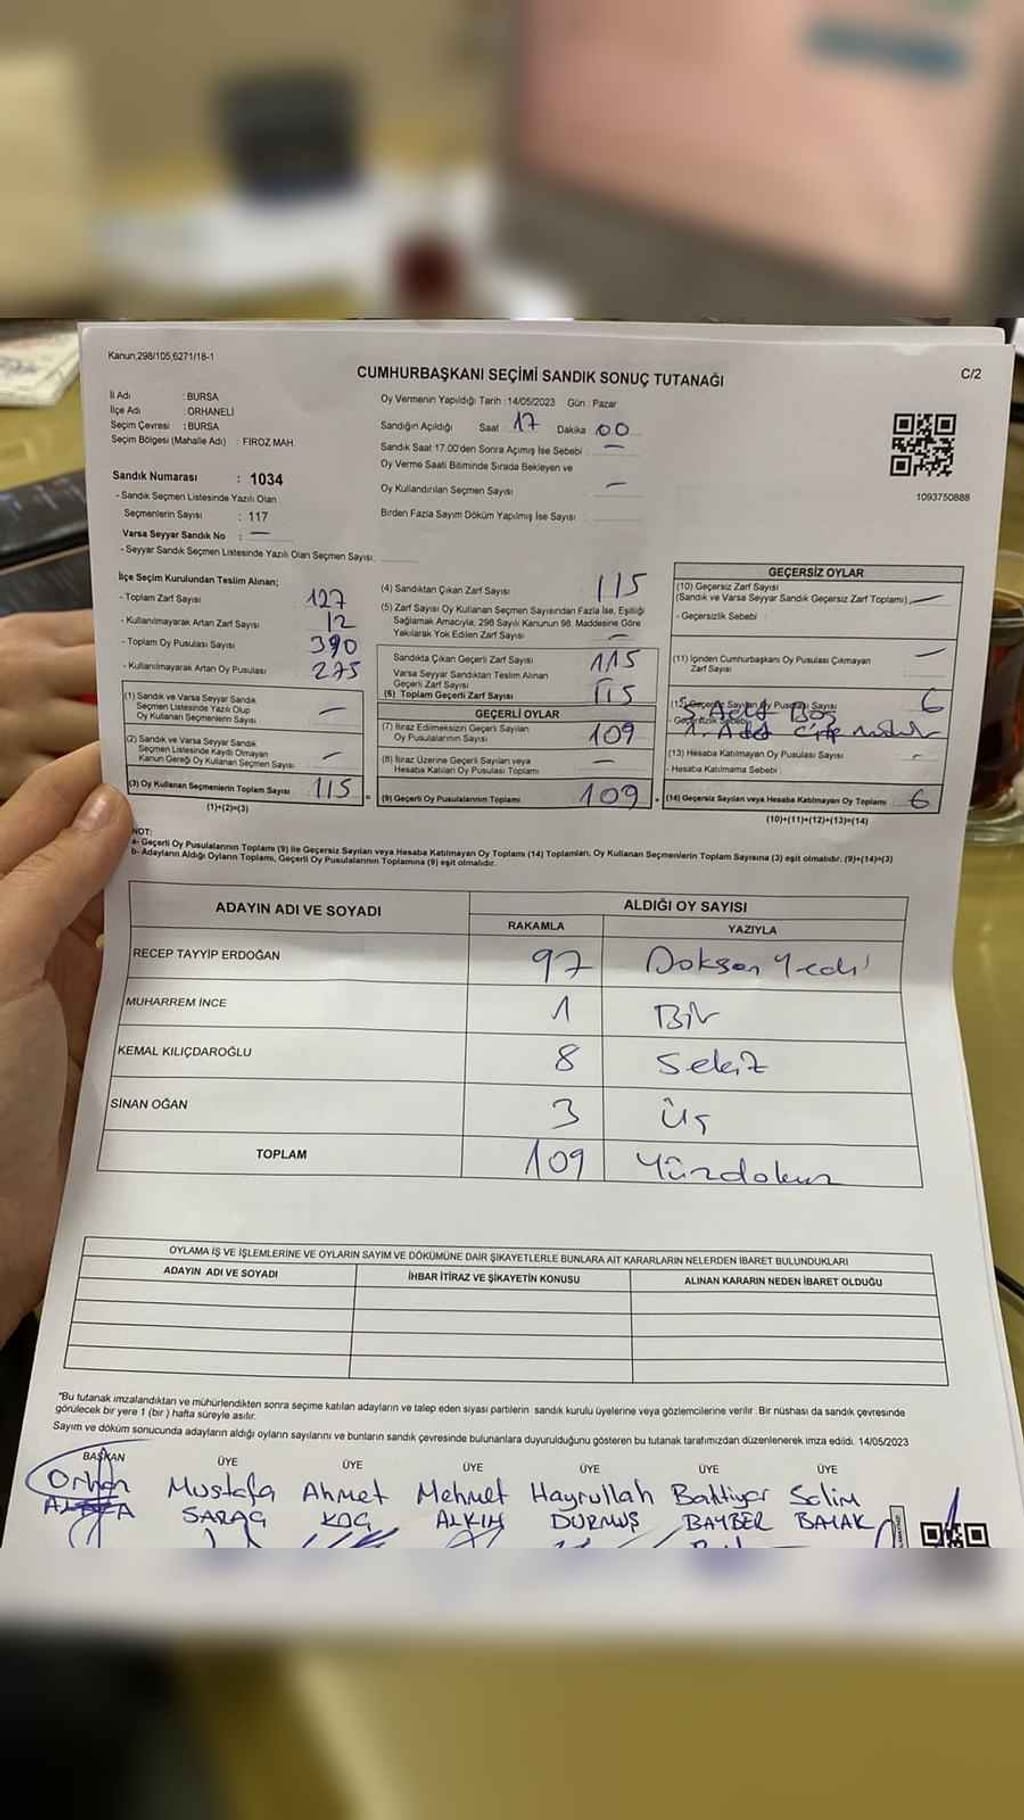 Kanun,298/105,6271/18-1
CUMHURBAŞKANI SEÇİMİ SANDIK SONUÇ TUTANAĞI
C/2
İl Adı : BURSA
İlçe Adı : ORHANELİ
Seçim Çevresi : BURSA
Seçim Bölgesi (Mahalle Adı) : FIROZ MAH.
Sandık Numarası : 1034
- Sandık Seçmen Listesinde Yazılı Olan
Seçmenlerin Sayısı : 117
Varsa Seyyar Sandık No : —
- Seyyar Sandık Seçmen Listesinde Yazılı Olan Seçmen Sayısı:
Oy Vermenin Yapıldığı Tarih :14/05/2023 Gün : Pazar
Sandığın Açıldığı Saat 17 Dakika 00
Sandık Saat 17.00'den Sonra Açımış İse Sebebi —
Oy Verme Saati Bitiminde Sırada Bekleyen ve
Oy Kullandırılan Seçmen Sayısı —
Birden Fazla Sayım Döküm Yapılmış İse Sayısı
1093750888
İlçe Seçim Kurulundan Teslim Alınan;
- Toplam Zarf Sayısı 127
- Kullanılmayarak Artan Zarf Sayısı 12
- Toplam Oy Pusulası Sayısı 390
- Kullanılmayarak Artan Oy Pusulası 275
(1) Sandık ve Varsa Seyyar Sandık
Seçmen Listesinde Yazılı Olup
Oy Kullanan Seçmenlerin Sayısı —
(2) Sandık ve Varsa Seyyar Sandık
Seçmen Listesinde Kaydı Olmayan
Kanun Gereği Oy Kullanan Seçmen Sayısı —
(3) Oy Kullanan Seçmenlerin Toplam Sayısı 115
(1)+(2)=(3)
(4) Sandıktan Çıkan Zarf Sayısı 115
(5) Zarf Sayısı Oy Kullanan Seçmen Sayısından Fazla İse, Eşitliği
Sağlamak Amacıyla, 298 Sayılı Kanunun 98. Maddesine Göre
Yakılarak Yok Edilen Zarf Sayısı —
Sandıkta Çıkan Geçerli Zarf Sayısı 115
Varsa Seyyar Sandıktan Teslim Alınan
Geçerli Zarf Sayısı
(6) Toplam Geçerli Zarf Sayısı 115
GEÇERLİ OYLAR
(7) İtiraz Edilmeksizin Geçerli Sayılan
Oy Pusulalarının Sayısı 109
(8) İtiraz Üzerine Geçerli Sayılan veya
Hesaba Katılan Oy Pusulası Toplamı —
(9) Geçerli Oy Pusulalarının Toplamı 109
GEÇERSİZ OYLAR
(10) Geçersiz Zarf Sayısı
(Sandık ve Varsa Seyyar Sandık Geçersiz Zarf Toplamı) —
- Geçersizlik Sebebi
(11) İçinden Cumhurbaşkanı Oy Pusulası Çıkmayan
Zarf Sayısı —
Oy Pusulası Sayısı 6
5. Adet Boş
1. Adet
(13) Hesaba Katılmayan Oy Pusulası Sayısı -
- Hesaba Katılmama Sebebi :
(14) Geçersiz Sayılan veya Hesaba Katılmayan Oy Toplamı 6
(10)+(11)+(12)+(13)=(14)
NOT:
a- Geçerli Oy Pusulalarının Toplamı (9) ile Geçersiz Sayılan veya Hesaba Katılmayan Oy Toplamı (14) Toplamları, Oy Kullanan Seçmenlerin Toplam Sayısına (3) eşit olmalıdır. (9)+(14)=(3)
b- Adayların Aldığı Oyların Toplamı, Geçerli Oy Pusulalarının Toplamına (9) eşit olmalıdır.
ADAYIN ADI VE SOYADI
ALDIĞI OY SAYISI
RAKAMLA YAZIYLA
RECEP TAYYİP ERDOĞAN 97 Doksan Yedi
MUHARREM İNCE 1 Bir
KEMAL KILIÇDAROĞLU 8 Sekiz
SİNAN OĞAN 3 Üç
TOPLAM 109 Yüzdokuz
OYLAMA İŞ VE İŞLEMLERİNE VE OYLARIN SAYIM VE DÖKÜMÜNE DAİR ŞİKAYETLERLE BUNLARA AİT KARARLARIN NELERDEN İBARET BULUNDUKLARI
ADAYIN ADI VE SOYADI İHBAR İTİRAZ VE ŞİKAYETİN KONUSU ALINAN KARARIN NEDEN İBARET OLDUĞU
"Bu tutanak imzalandıktan ve mühürlendikten sonra seçime katılan adayların ve talep eden siyasi partilerin sandık kurulu üyelerine veya gözlemcilerine verilir. Bir nüshası da sandık çevresinde
görülecek bir yere 1 (bir ) hafta süreyle asılır.
Sayım ve döküm sonucunda adayların aldığı oyların sayılarını ve bunların sandık çevresinde bulunanlara duyurulduğunu gösteren bu tutanak tarafımızdan düzenlenerek imza edildi. 14/05/2023
BAŞKAN ÜYE ÜYE ÜYE ÜYE ÜYE ÜYE
Orhan Mustafa Ahmet Mehmet Hayrullah Bahtiyar Selim
SARAÇ KOÇ ALKIM DURMUŞ BAYBER BAYAK